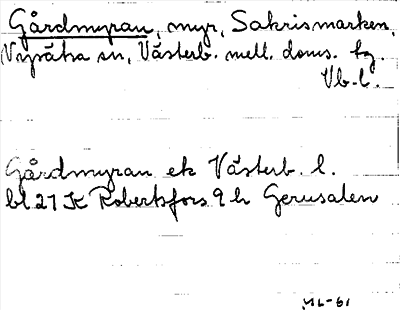 Gårdmyran, myr, Sakrismarken,
Nysätra sn, Västerb. mell. doms. tg.
Vb. l.
Gårdmyran ek Västerb. l.
bl 21 K Robertsfors 9 h Gerusalen